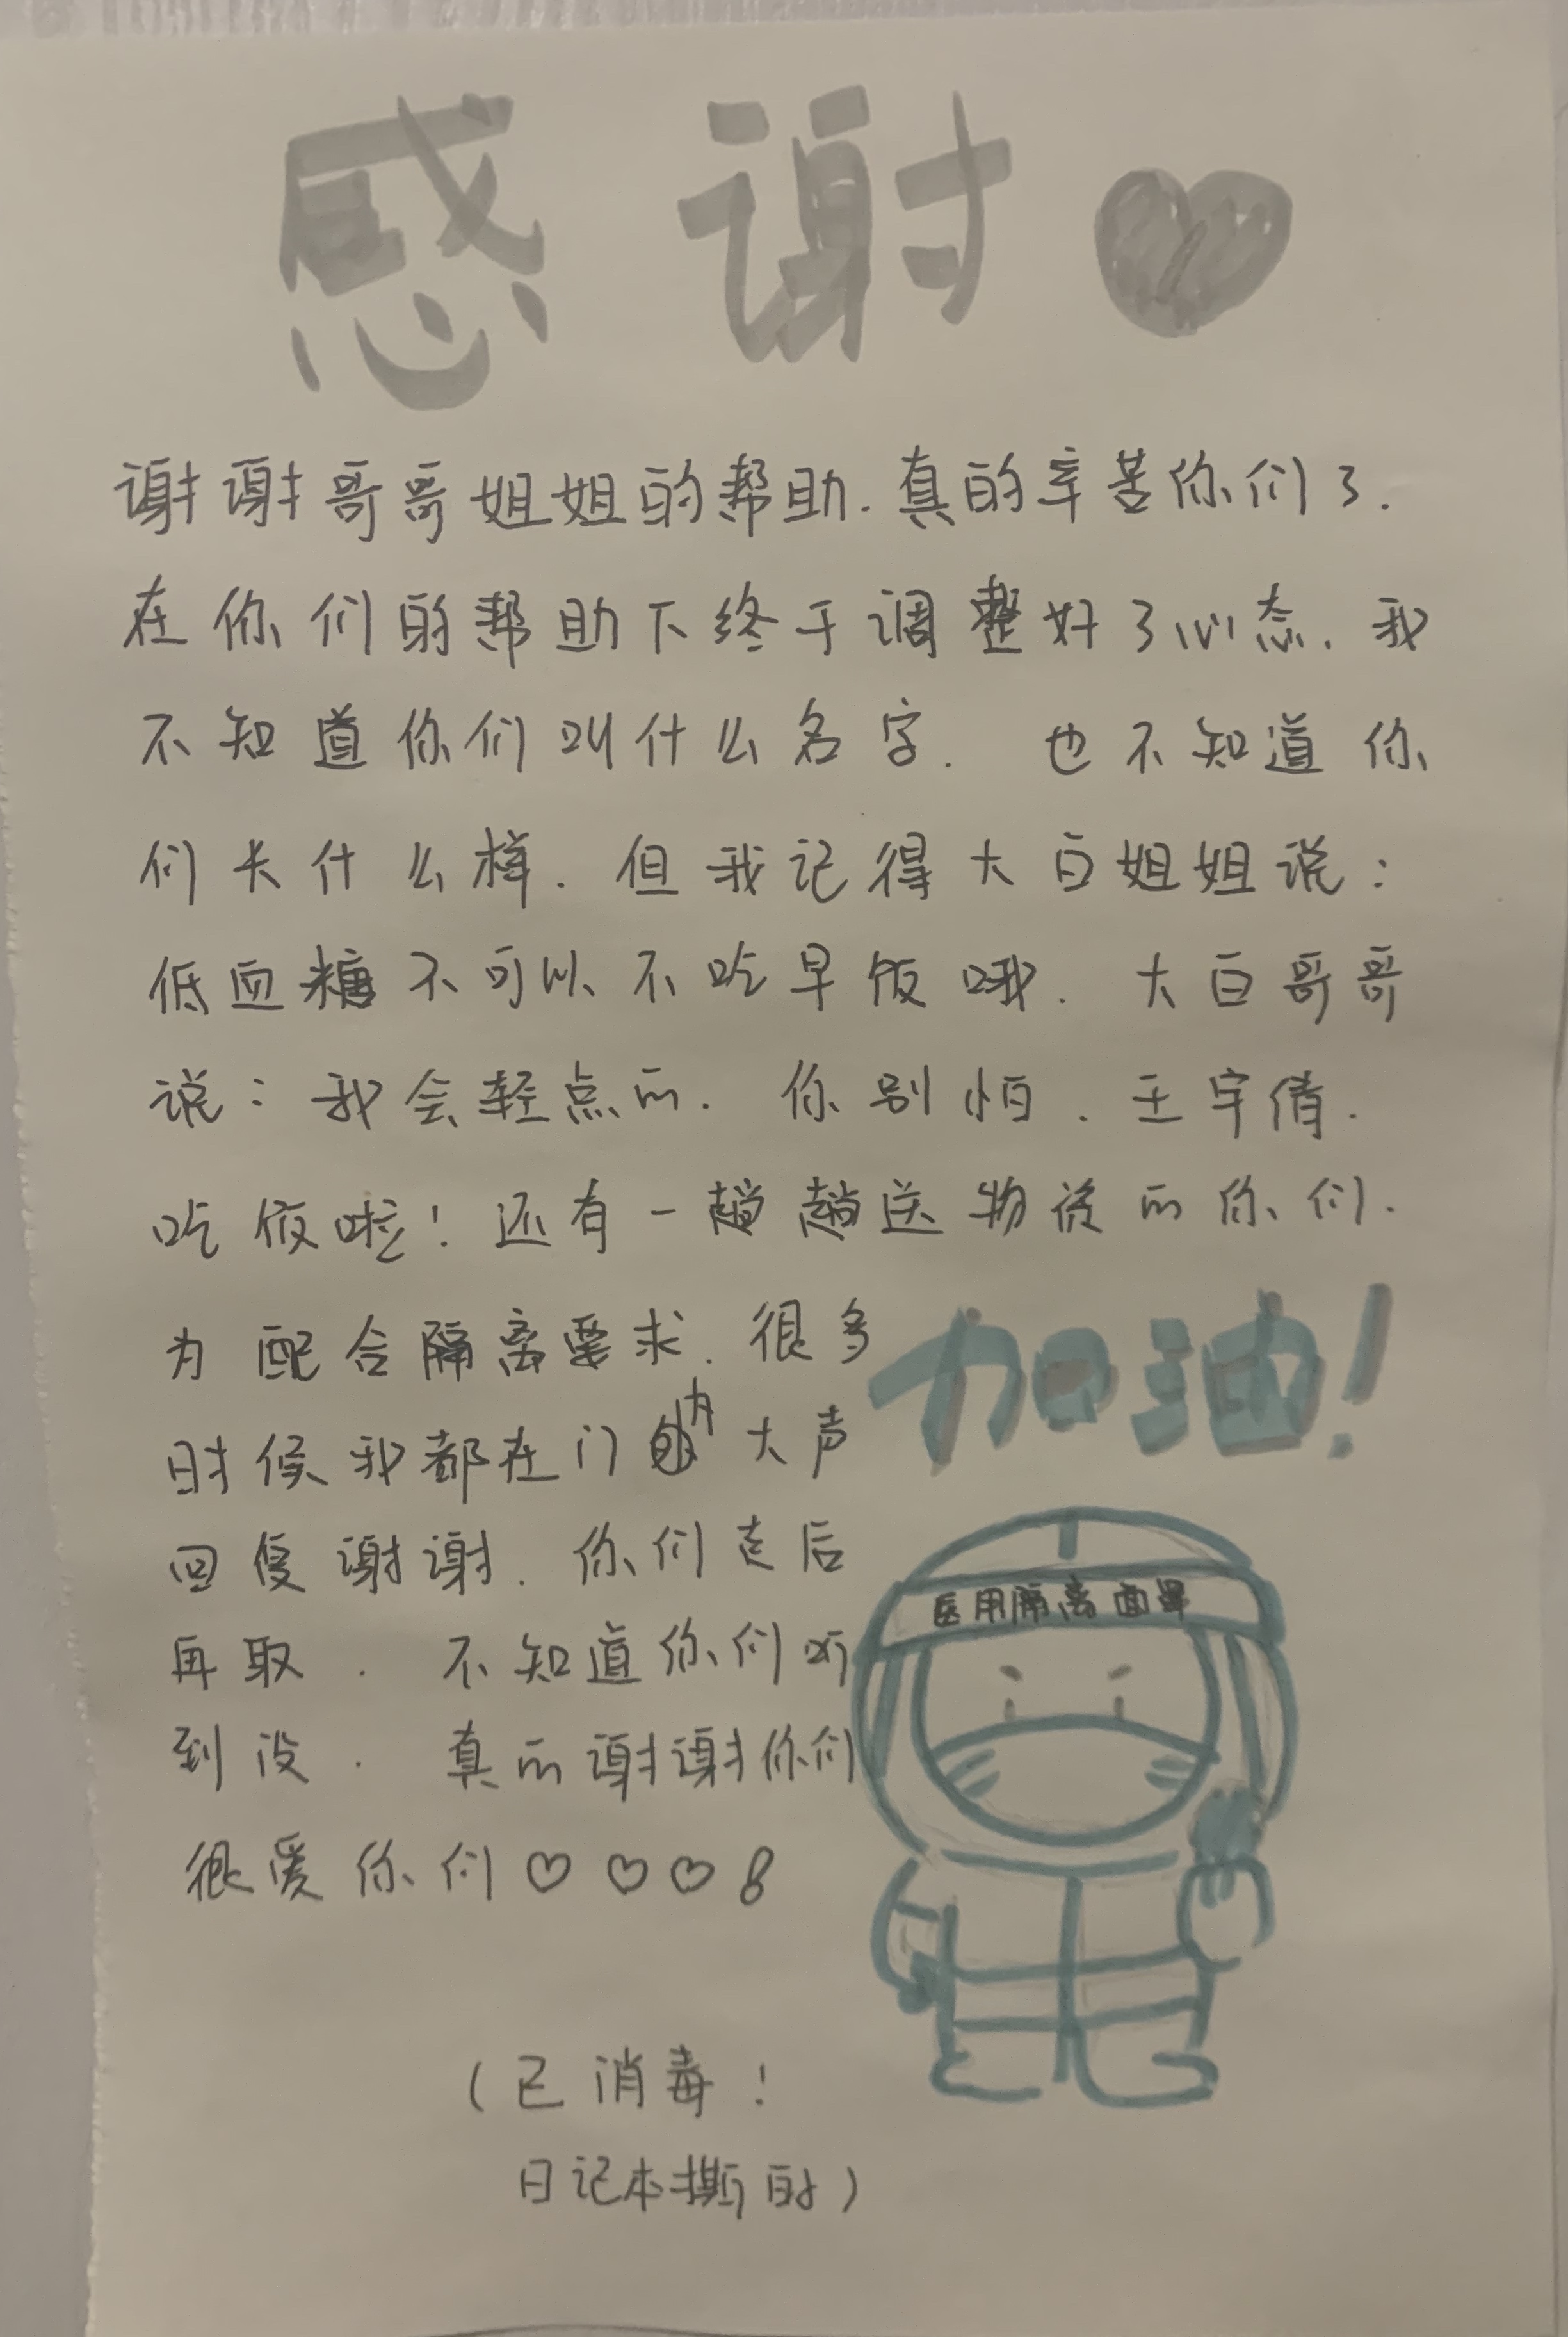 感谢
谢谢哥哥姐姐的帮助.真的辛苦你们了.
在你们的帮助下终于调整好了心态.我
不知道你们叫什么名字.也不知道你
们长什么样.但我记得大白姐姐说:
低血糖不可以不吃早饭哦.大白哥哥
说:我会轻点的.你别怕.王宇倩.
吃饭啦!还有一趟趟送物资的你们.
为配合隔离要求.很多
时候我都在门内大声
回复谢谢.你们走后
再取.不知道你们听
到没.真的谢谢你们
很爱你们♡♡♡
加油!
医用隔离面罩
(已消毒!
日记本撕的)